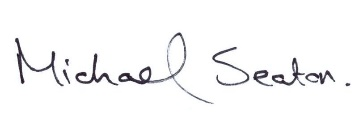 Michael Seaton.